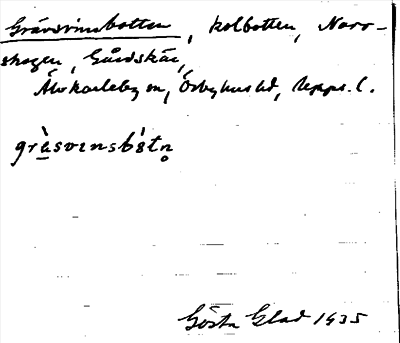 Gråsvinsbotten, kolbotten, Norr-
skogen, Gårdskär,
Älvkarleby sn, Örbyhus hd, Uppl. l.
gràsvinsbòtn
Gösta Glad 1935